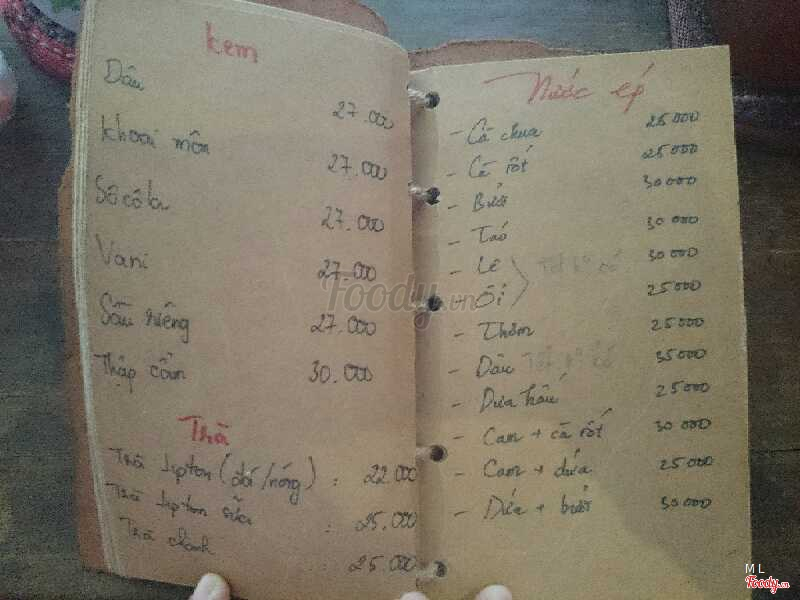 kem
Dâu 27.000
khoai môn 27.000
Sôcôla 27.000
Vani 27.000
Sầu riêng 27.000
Thập cẩm 30.000
Trà
Trà lipton (đá/nóng) : 22.000
Trà lipton sữa : 25.000
Trà chanh 25.000
Nước ép
- Cà chua 25000
- Cà rốt 25000
- Bưởi 30000
- Táo 30000
- Lê 30000
- Ổi 25000
- Thơm 25000
- Dâu 35000
- Dưa hấu 25000
- Cam + cà rốt 30000
- Cam + dứa 25000
- Dứa + bưởi 30000
Foody.vn
M L
Foody.vn